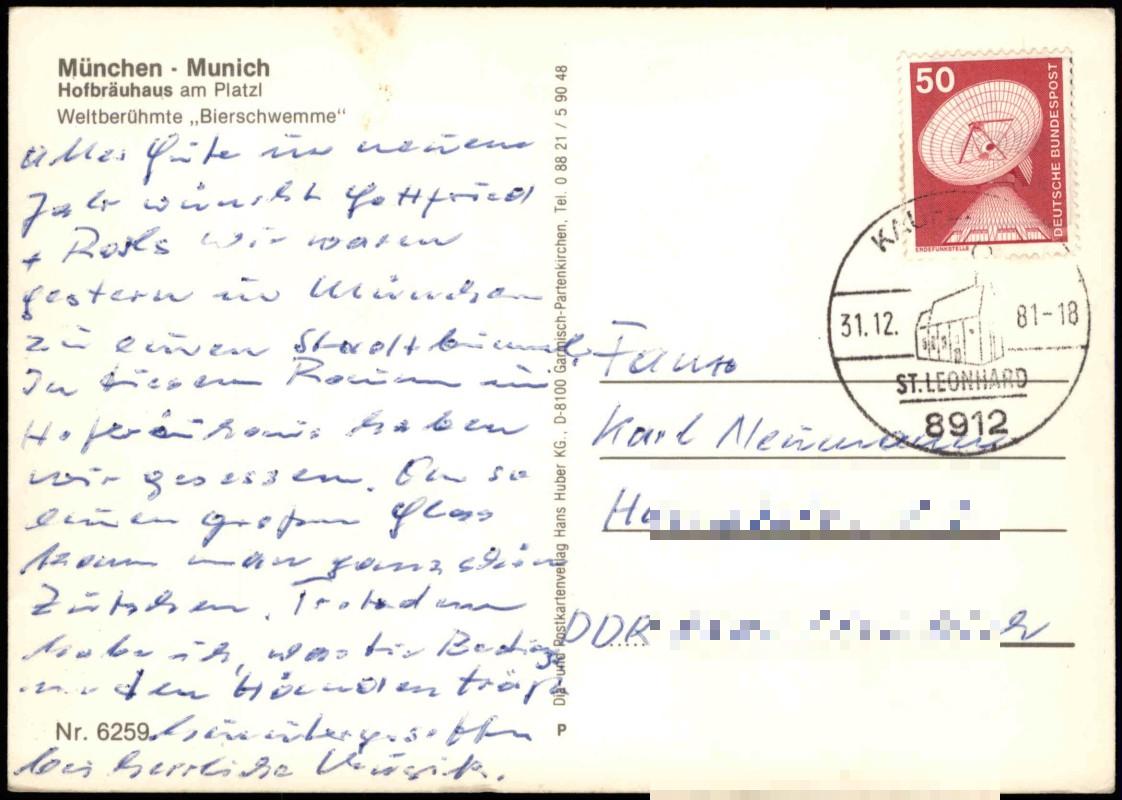 München - Munich
Hofbräuhaus am Platzl
Weltberühmte „Bierschwemme“
Alles Gute im neuen
Jahr wünscht Gottfried
+ Wir waren
gestern in München
zu einen Stadtbummel.
In diesem Raum im
Hofbräuhaus haben
wir gegessen. An so
einen großen Glas
kann man ganz schön
Zutschen. Trotzdem
habe ich, was die Bedig
in den Händen trägt
hinuntergesoffen
bei herrliche Musik.
Nr. 6259
Dia- und Postkartenverlag Hans Huber KG., D-8100 Garmisch-Partenkirchen, Tel. 0 88 21 / 5 90 48
P
50
DEUTSCHE BUNDESPOST
ERDEFUNKSTELLE
31.12. 81-18
ST. LEONHARD
8912
Karl Neumann
DDR